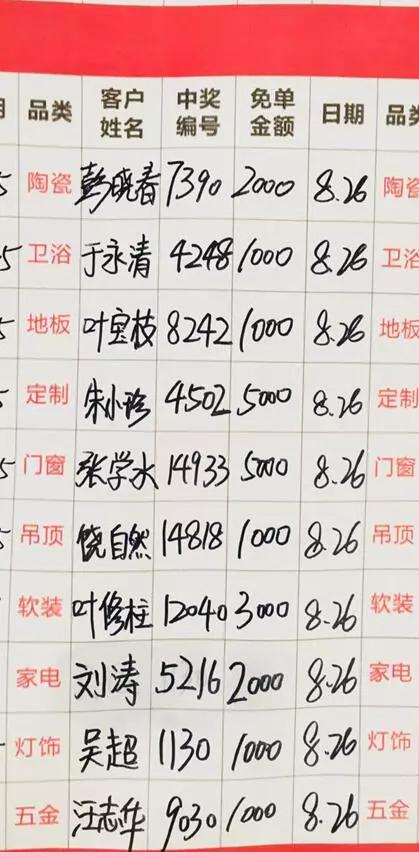 期 品类 客户姓名 中奖编号 免单金额 日期 品类
5 陶瓷 彭晓春 7390 2000 8.26 陶瓷
5 卫浴 于永清 4248 1000 8.26 卫浴
5 地板 叶宝枝 8242 1000 8.26 地板
5 定制 朱小珍 4502 5000 8.26 定制
5 门窗 张学水 14933 5000 8.26 门窗
5 吊顶 饶自然 14818 1000 8.26 吊顶
软装 叶修柱 12040 3000 8.26 软装
家电 刘涛 5216 2000 8.26 家电
灯饰 吴超 1130 1000 8.26 灯饰
五金 汪志华 9030 1000 8.26 五金